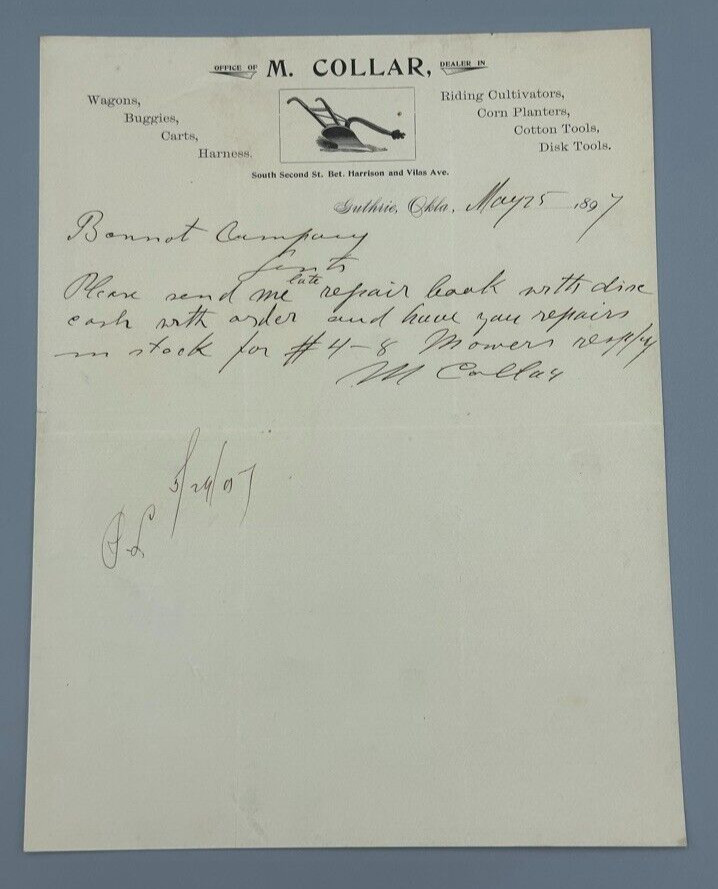 OFFICE OF M. COLLAR, DEALER IN
Wagons,
Buggies,
Carts,
Harness.
Riding Cultivators,
Corn Planters,
Cotton Tools,
Disk Tools.
South Second St. Bet. Harrison and Vilas Ave.
Guthrie, Okla., May 25 1897
Bonnot Company
Gents
late
Please send me repair book with disc
cash with order and have you repairs
in stock for #4-8 Mowers resply
M Collar